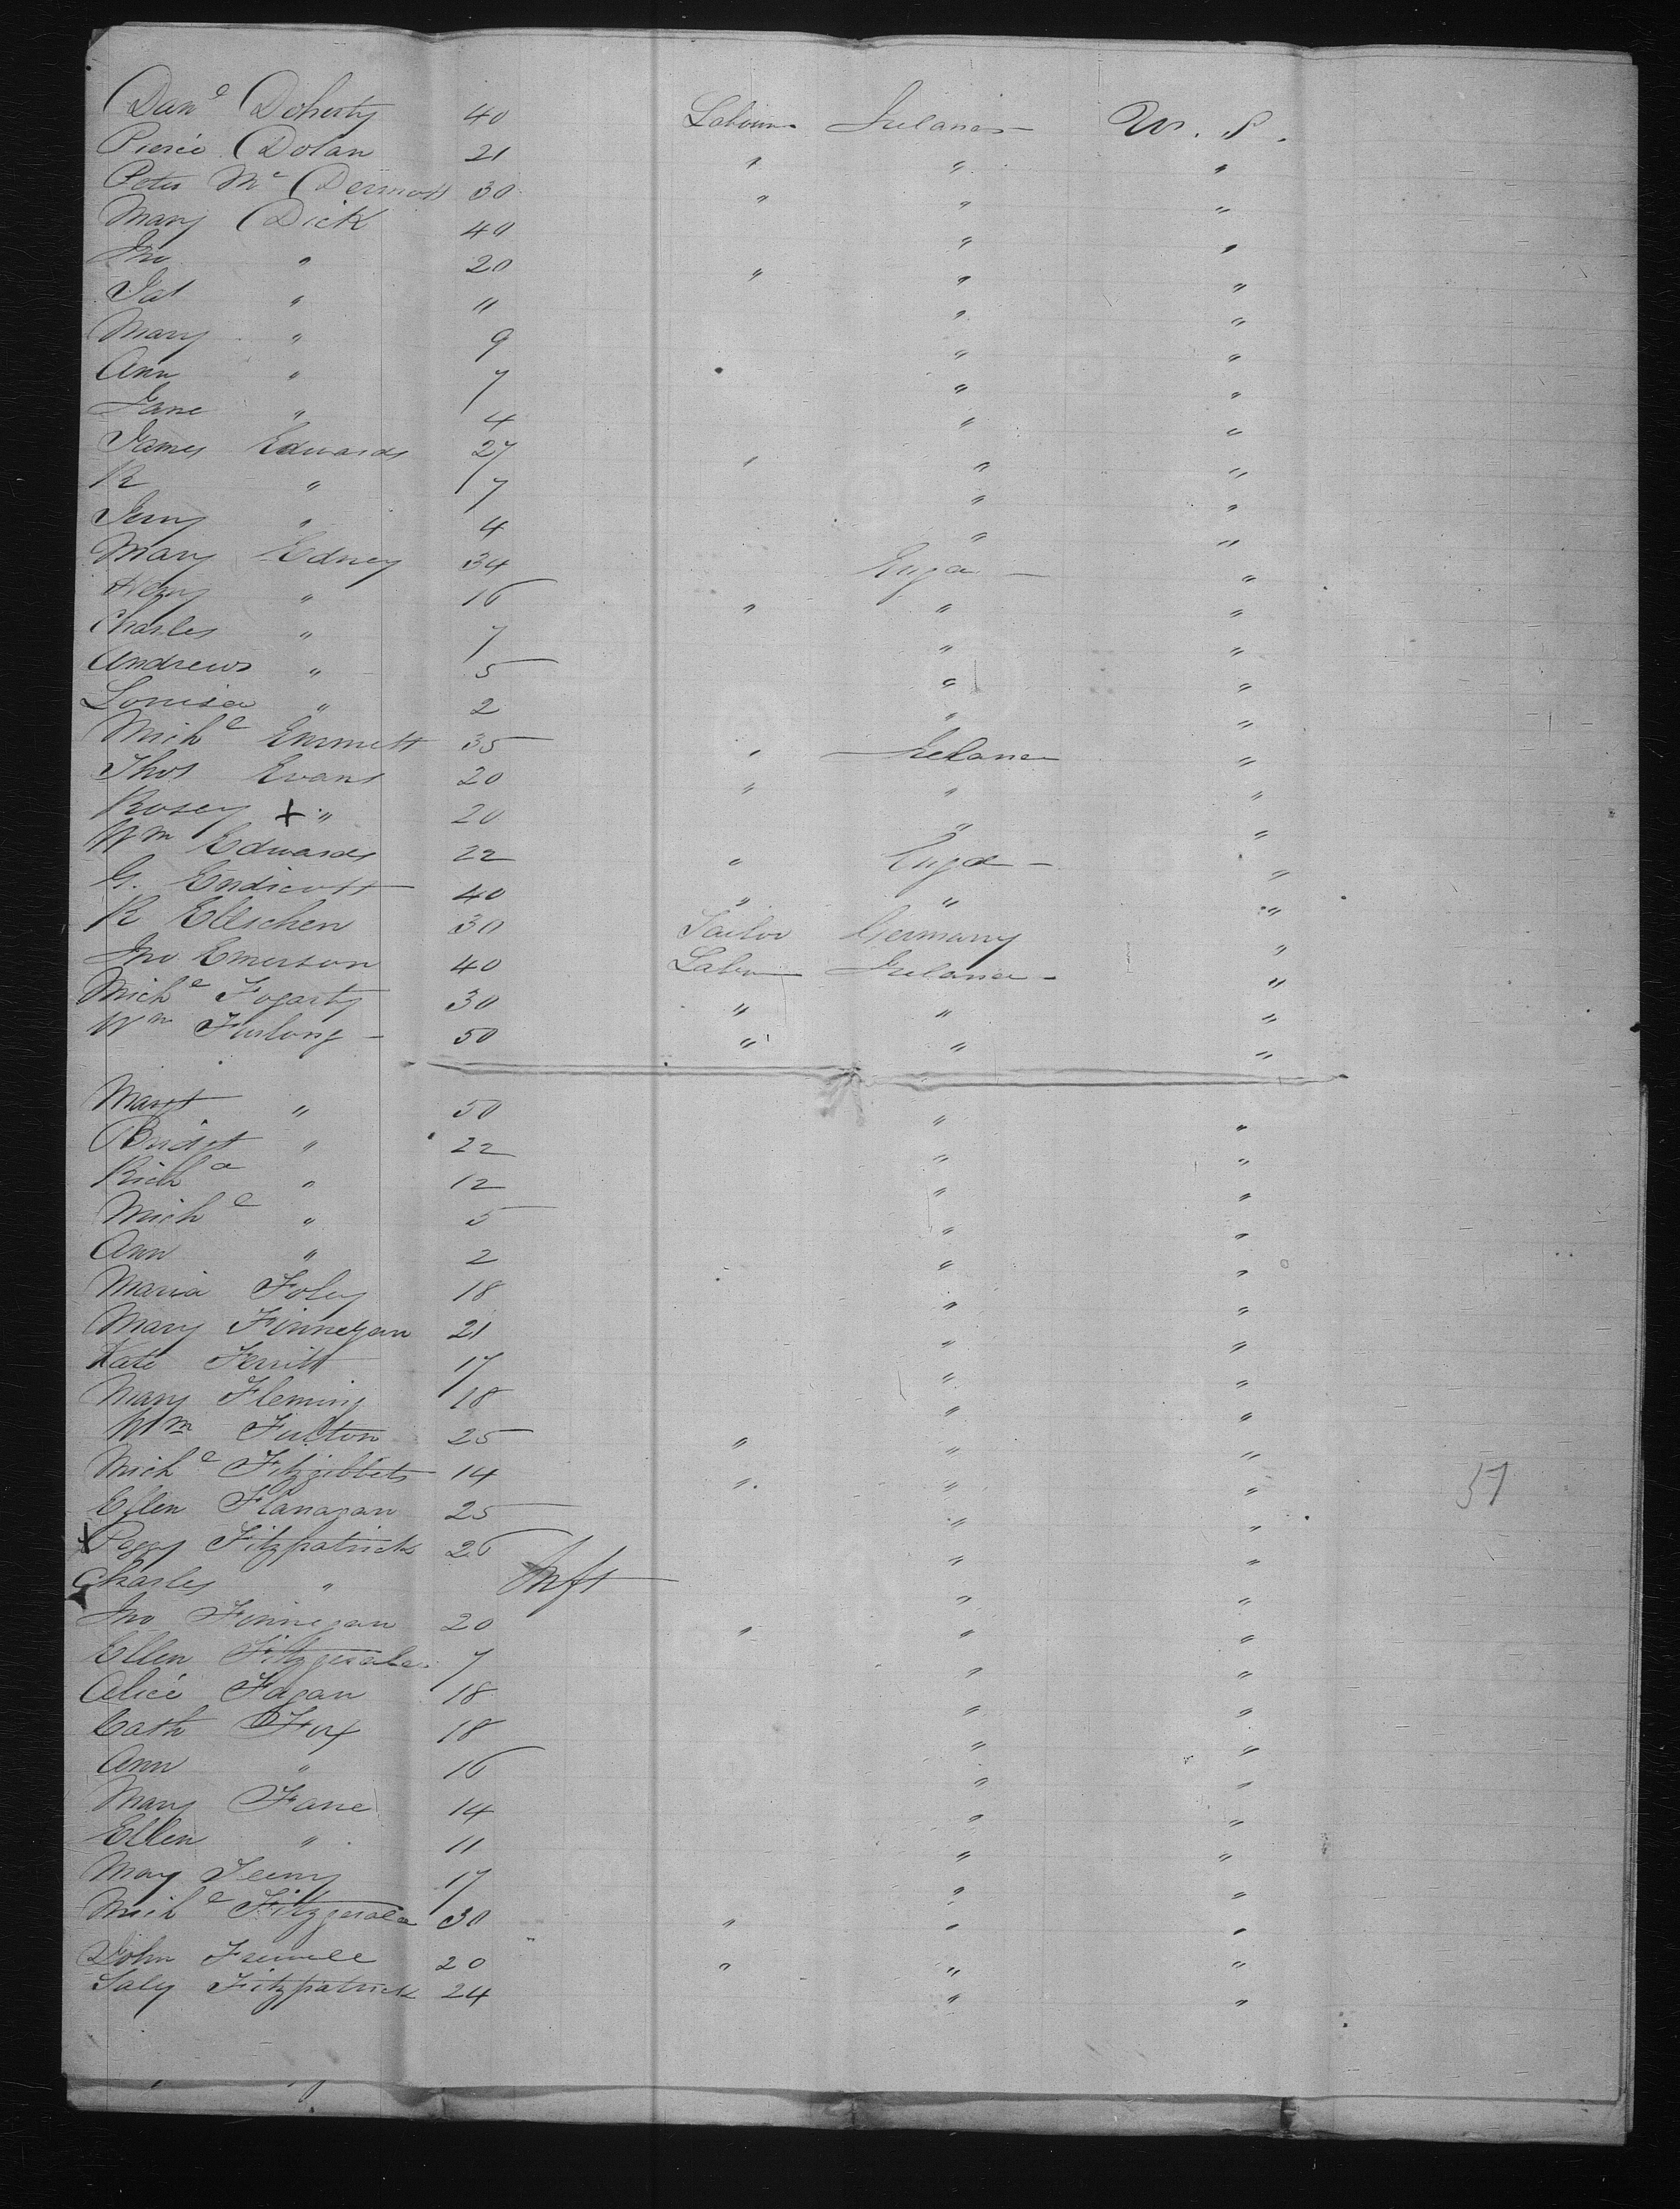 Danl Doherty 40 Labourer Ireland U. S.
Pierce Dolan 21 " " "
Peter Mc Dermott 30 " " "
Mary Dick 40 " "
Jno " 20 " " "
Jas " 11 " "
Mary " 9 " "
Ann " 7 " "
Jane " 4 " "
James Edwards 27 " " "
R " 7 " "
Jerry " 4 " "
Mary Edney 34 Engd "
Henry " 16 " " "
Charles " 7 " "
Andrews " 5 " "
Louisa " 2 " "
Michl Emmett 35 " Ireland "
Thos Evans 20 " " "
Rosey + " 20 " "
Wm Edwards 22 " Engd "
G. Endicott 40 " " "
R Ellschen 30 Germany "
Jno Emerson 40 Labr Ireland "
Michl Fogarty 30 " " "
Wm Furlong 50 " " "
Margt " 50 " "
Bridget " 22 " "
Richd " 12 " "
Michl " 5 " "
Ann " 2 " "
Maria Foley 18 " "
Mary Finnegan 21 " "
Kate Ferritt 17 " "
Mary Fleming 18 " "
Wm Fulton 25 " " "
Michl Fitzgibbets 14 " " "
57
Ellen Flanagan 25 " "
+ Peggy Fitzpatrick 26 " "
Charles " Inft " "
Jno Finnegan 20 " " "
Ellen Fitzgerald 7 " "
Alice Fagan 18 " "
Cath Fox 18 " "
Ann " 16 " "
Mary Fane 14 " "
Ellen " 11 " "
Mary 17 " "
Michl Fitzgerald 30 " " "
John 20 " " "
Saly Fitzpatrick 24 " "